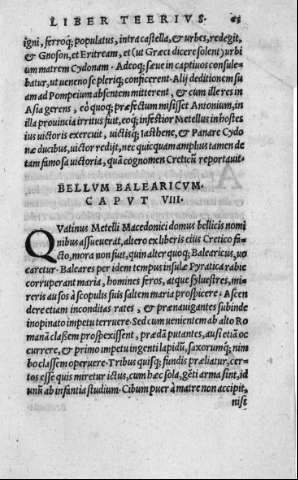 LIBER TEERIVS. 63
igni, ferroq; populatus, intra castella, & urbes, redegit,
& Gnoson, et Eritream, et (ut Græci dicere solent) urbi
um matrem Cydonam. Adeoq; sæue in captiuos consule-
batur, ut ueneno se pleriq; conficerent. Alij deditionem su
am ad Pompeium absentem mitterent, & cum ille res in
Asia gerens, eò quoq; præfectum misisset Antonium, in
illa prouincia irritus fuit, eoq; infestior Metellus in hostes
ius uictoris exercuit, uictisq; Lasthene, & Panare Cydo
næ ducibus, uictor redijt, nec quicquam amplius tamen de
tam famosa uictoria, quã cognomen Creticũ reportauit.
BELLVM BALEARICVM.
CAPVT VIII.
QVatinus Metelli Macedonici domus bellicis nomi
nibus assueuerat, altero ex liberis eius Cretico fa-
cto, mora non fuit, quin alter quoq; Balearicus, uo
caretur. Baleares per idem tempus insulæ Pyratica rabie
corruperant maria, homines feros, atque syluestres, mi-
reris ausos à scopulis suis saltem maria prospicere. Ascen
dere etiam inconditas rates, & prænauigantes subinde
inopinato impetu terruere. Sed cum uenientem ab alto Ro
manã classem prospexissent, prædã putantes, ausi etiã oc
currere, & primo impetu ingenti lapidũ, saxorumq; nim
bo classem operuere. Tribus quisq; fundis præliatur, cer-
tos esse quis miretur ictus, cum hæc sola, gẽti arma sint, id
unũ ab infantia studium. Cibum puer à matre non accipit,
nisi